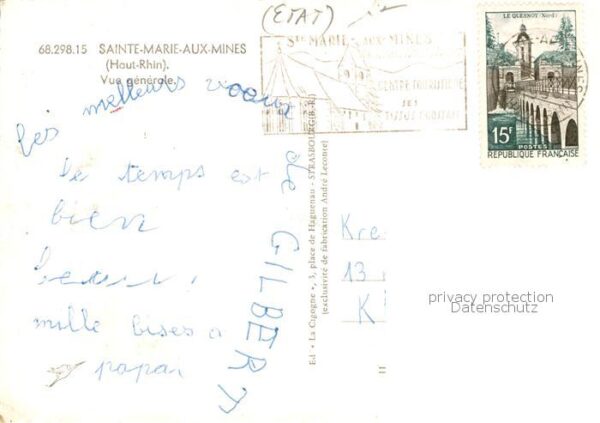 (ETAT)
68.298.15 SAINTE-MARIE-AUX-MINES
(Haut-Rhin).
Vue générale.
STE MARIE-AUX-MINES
CENTRE TOURISTIQUE
SES
TISSUS
LE QUESNOY (Nord)
15F
POSTES
REPUBLIQUE FRANÇAISE
les meilleurs voeux
de GILBERT
le temps est
bien
beau,
mille bises a
papai
Ed. • La Cigogne •, 3, place de Haguenau - STRASBOURG (B.-R.)
(exclusivité de fabrication André Leconte)
Kre
13
K
privacy protection
Datenschutz